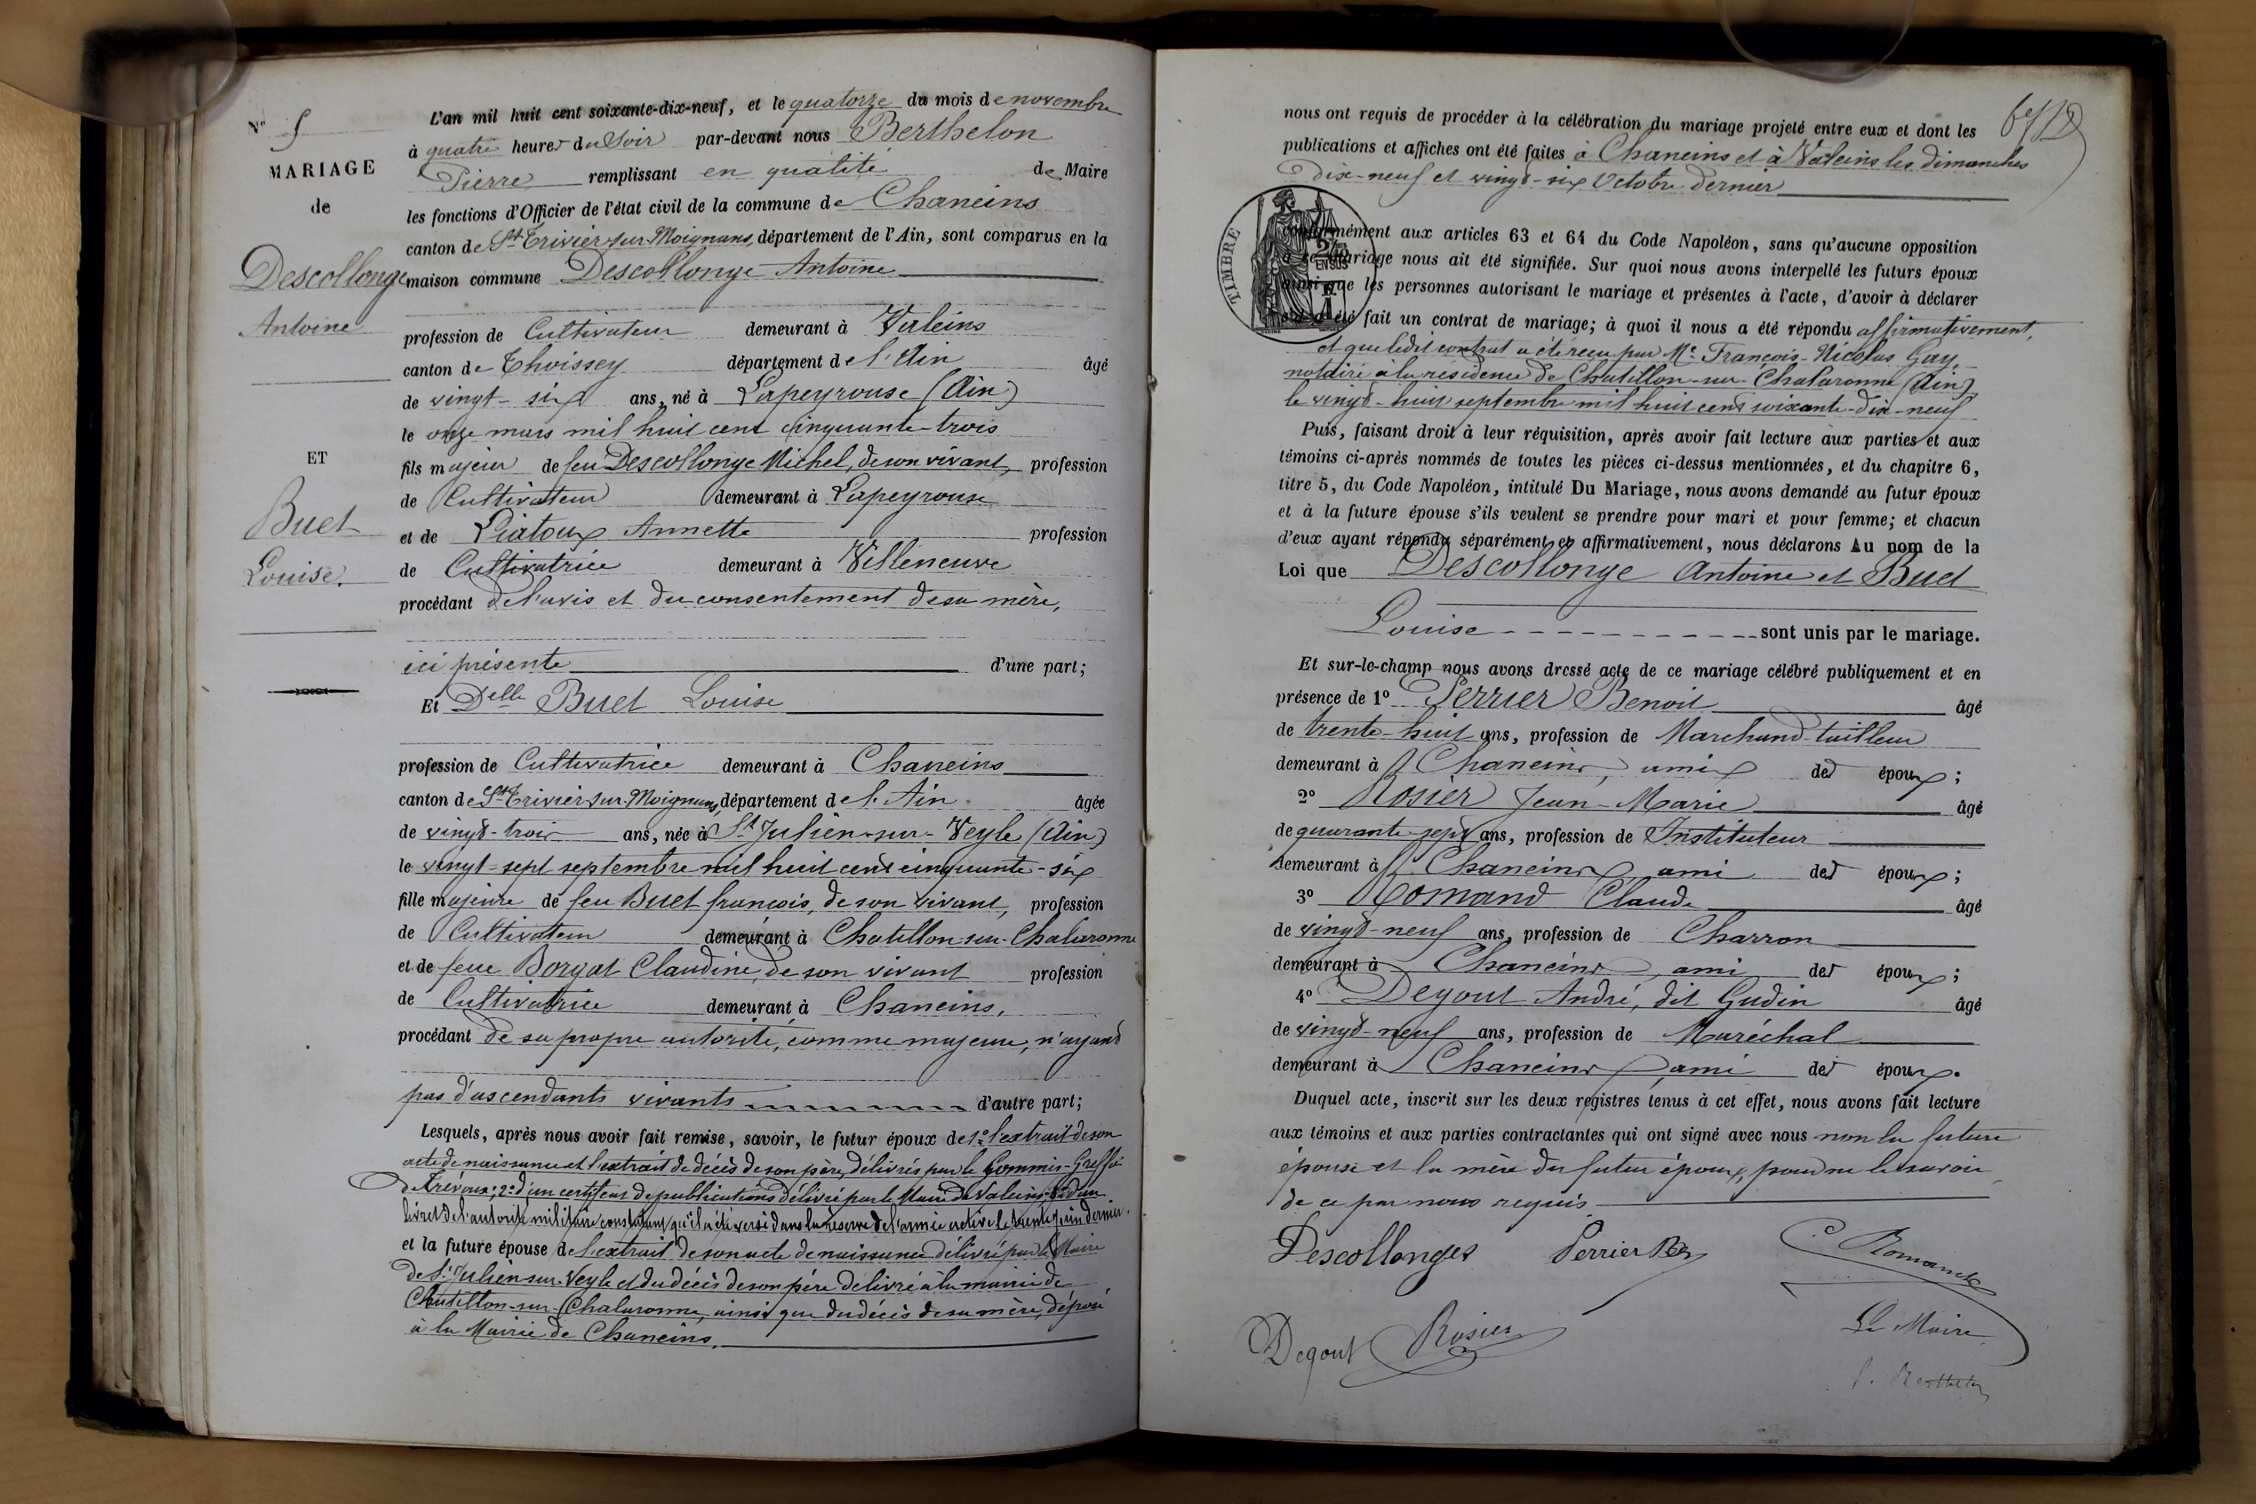 N° 5
MARIAGE
de
Descollonge
Antoine
ET
Buet
Louise.
L'an mil huit cent soixante-dix-neuf, et le quatorze du mois de novembre
à quatre heures du Soir par-devant nous Berthelon
Pierre remplissant en qualité de Maire
les fonctions d'Officier de l'état civil de la commune de Chaneins
canton de St Trivier sur Moignans, département de l'Ain, sont comparus en la
maison commune Descollonge Antoine
profession de Cultivateur demeurant à Valeins
canton de Thoissey département de l'Ain âgé
de vingt-six ans, né à Lapeyrouse (Ain)
le onze mars mil huit cent cinquante-trois
fils majeur de feu Descollonge Michel, de son vivant, profession
de Cultivateur demeurant à Lapeyrouse
et de Liatoux Annette profession
de Cultivatrice demeurant à Villeneuve
procédant de l'avis et du consentement de sa mère,
ici présente d'une part;
Et Delle Buet Louise
profession de Cultivatrice demeurant à Chaneins
canton de St Trivier sur Moignans, département de l'Ain âgée
de vingt-trois ans, née à St Julien-sur-Veyle (Ain)
le vingt-sept septembre mil huit cent cinquante-six
fille majeure de feu Buet françois, de son vivant, profession
de Cultivateur demeurant à Chatillon-sur-Chalaronne
et de feue Borgat Claudine, de son vivant profession
de Cultivatrice demeurant à Chaneins,
procédant de sa propre autorité, comme majeure, n'ayant
pas d'ascendants vivants d'autre part;
Lesquels, après nous avoir fait remise, savoir, le futur époux de 1° l'extrait de son
acte de naissance et l'extrait de décès de son père, délivrés par le Commis-Greffier
de Trévoux; 2° d'un certificat de publications délivré par le Maire de Valeins; 3° d'un
livret de l'autorité militaire constatant qu'il a été versé dans la réserve de l'armée active le trente juin dernier.
et la future épouse de l'extrait de son acte de naissance délivré par le Maire
de St Julien-sur-Veyle et du décès de son père délivré à la mairie de
Chatillon-sur-Chalaronne, ainsi que du décès de sa mère, déposé
à la Mairie de Chaneins.
nous ont requis de procéder à la célébration du mariage projeté entre eux et dont les
publications et affiches ont été faites à Chaneins et à Valeins les dimanches
dix-neuf et vingt-six Octobre dernier
TIMBRE
conformément aux articles 63 et 64 du Code Napoléon, sans qu'aucune opposition
à ce mariage nous ait été signifiée. Sur quoi nous avons interpellé les futurs époux
EN SUS
ainsi que les personnes autorisant le mariage et présentes à l'acte, d'avoir à déclarer
s'il a été fait un contrat de mariage; à quoi il nous a été répondu affirmativement,
et que ledit contrat a été reçu par Me François-Nicolas Guy,
notaire à la résidence de Chatillon-sur-Chalaronne (Ain)
le vingt-huit septembre mil huit cent soixante-dix-neuf
Puis, faisant droit à leur réquisition, après avoir fait lecture aux parties et aux
témoins ci-après nommés de toutes les pièces ci-dessus mentionnées, et du chapitre 6,
titre 5, du Code Napoléon, intitulé Du Mariage, nous avons demandé au futur époux
et à la future épouse s'ils veulent se prendre pour mari et pour femme; et chacun
d'eux ayant répondu séparément et affirmativement, nous déclarons Au nom de la
Loi que Descollonge Antoine et Buet
Louise sont unis par le mariage.
Et sur-le-champ nous avons dressé acte de ce mariage célébré publiquement et en
présence de 1° Perrier Benoit âgé
de trente-huit ans, profession de Marchand-tailleur
demeurant à Chaneins, ami des époux;
2° Rosier Jean-Marie âgé
de quarante-sept ans, profession de Instituteur
demeurant à Chaneins, ami des époux;
3° Romand Claude âgé
de vingt-neuf ans, profession de Charron
demeurant à Chaneins, ami des époux;
4° Degout André, dit Gudin âgé
de vingt-neuf ans, profession de Maréchal
demeurant à Chaneins, ami des époux.
Duquel acte, inscrit sur les deux registres tenus à cet effet, nous avons fait lecture
aux témoins et aux parties contractantes qui ont signé avec nous non la future
épouse et la mère du futur époux, pour ne le savoir
de ce par nous requis.
Descollonges Perrier Bt C Romand
Degout Rosier Le Maire
P. Berthelon